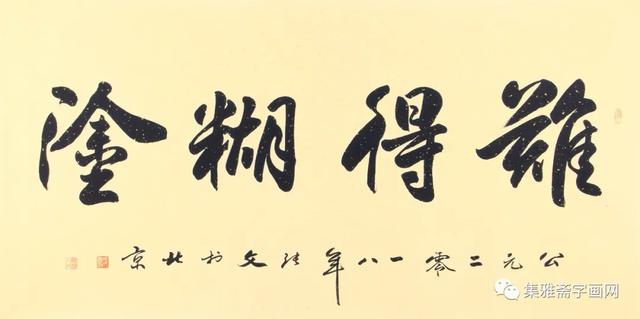 難得糊塗
公元二零一八年文於北京
集雅斋字画网